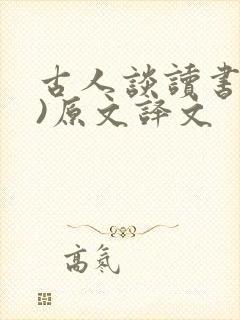 古人談讀書
)原文譯文
高氣